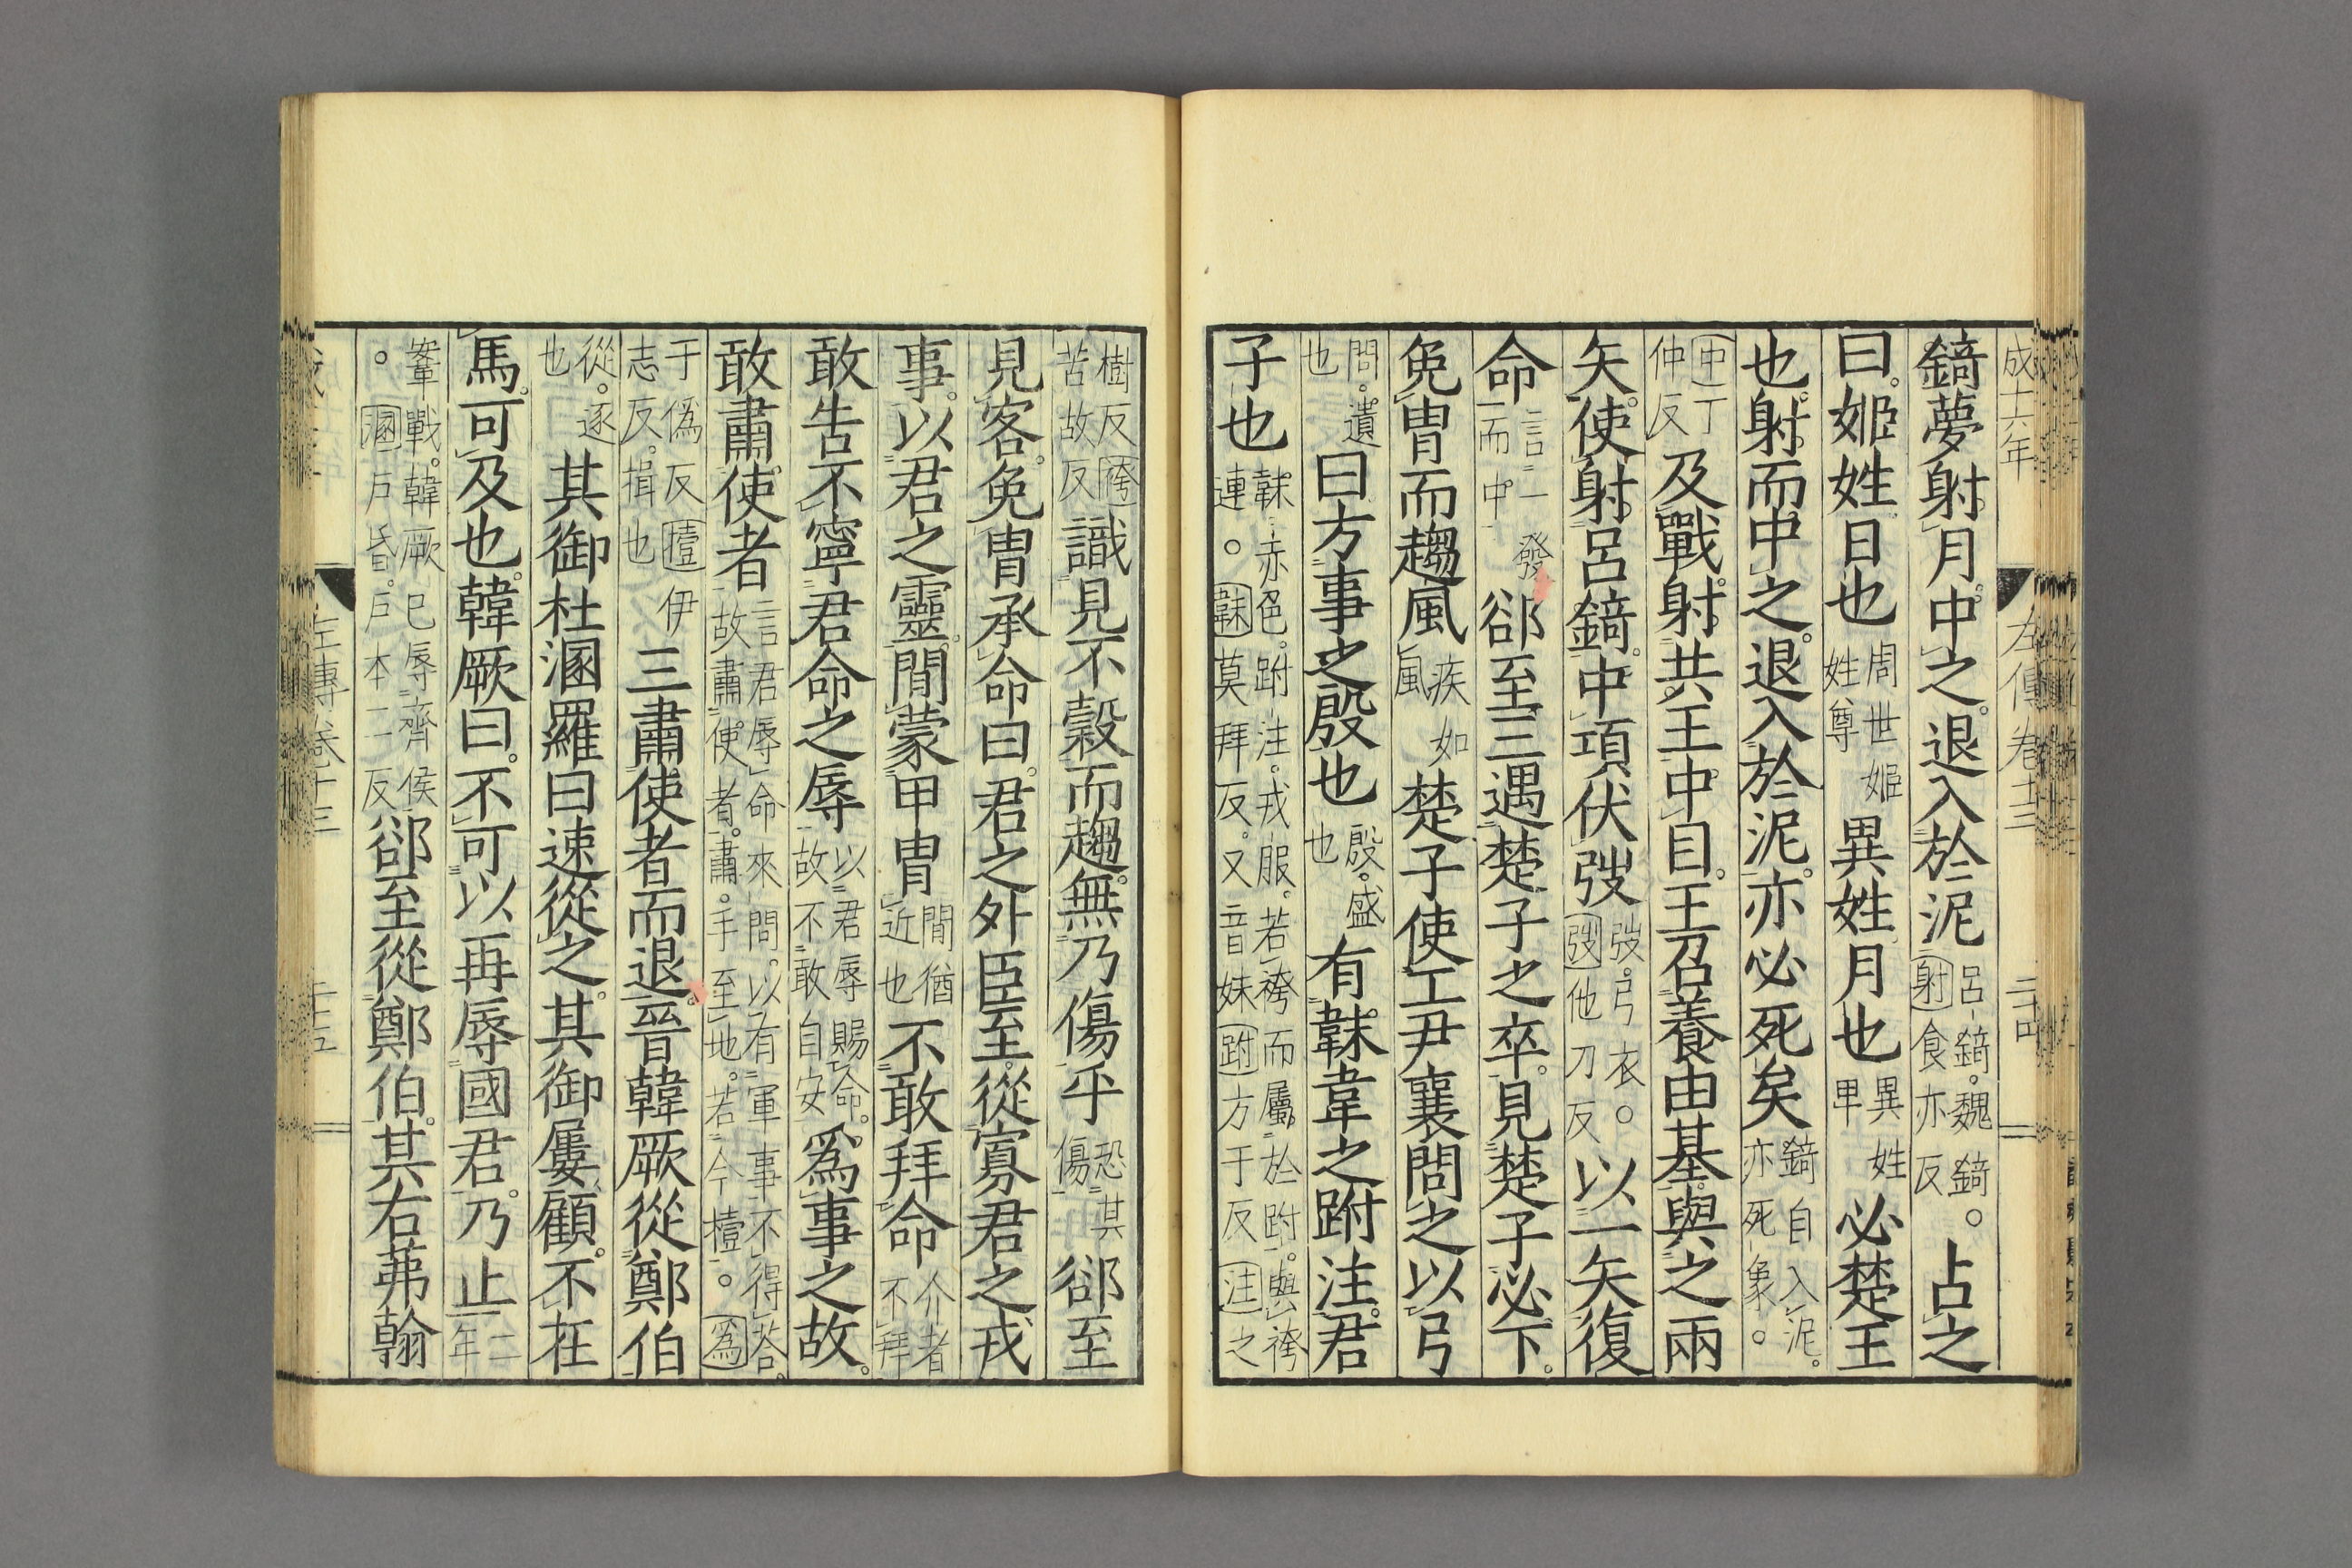 成十六年
左傳卷十三
二十四
錡夢射月中之退入於泥呂錡魏錡。射食亦反占之
曰姬姓日也周世姬姓尊異姓月也異姓卑必楚王
也射而中之退入於泥亦必死矣錡自入泥亦死象。
中丁仲反及戰射共王中目王召養由基與之兩
矢使射呂錡中項伏弢弢弓衣。弢他刀反以一矢復
命言一發而中郤至三遇楚子之卒見楚子必下
免冑而趨風疾如風楚子使工尹襄問之以弓
問遺也曰方事之殷也殷盛也有韎韋之跗注君
子也韎赤色跗注戎服若袴而屬於跗與袴連。韎莫拜反又音妹跗方于反注之
樹反袴苦故反識見不穀而趨無乃傷乎恐其傷郤至
見客免冑承命曰君之外臣至從寡君之戎
事以君之靈閒蒙甲冑閒猶近也不敢拜命介者不拜
敢告不寧君命之辱以君辱賜命故不敢自安爲事之故
敢肅使者言君辱命來問以有軍事不得荅故肅使者肅手至地若今撎。爲
于僞反撎伊志反揖也三肅使者而退晉韓厥從鄭伯
從逐也其御杜溷羅曰速從之其御屢顧不在
馬可及也韓厥曰不可以再辱國君乃止二年
鞌戰韓厥已辱齊侯。溷戶昏戶本二反郤至從鄭伯其右茀翰
左傳卷十三
二十五